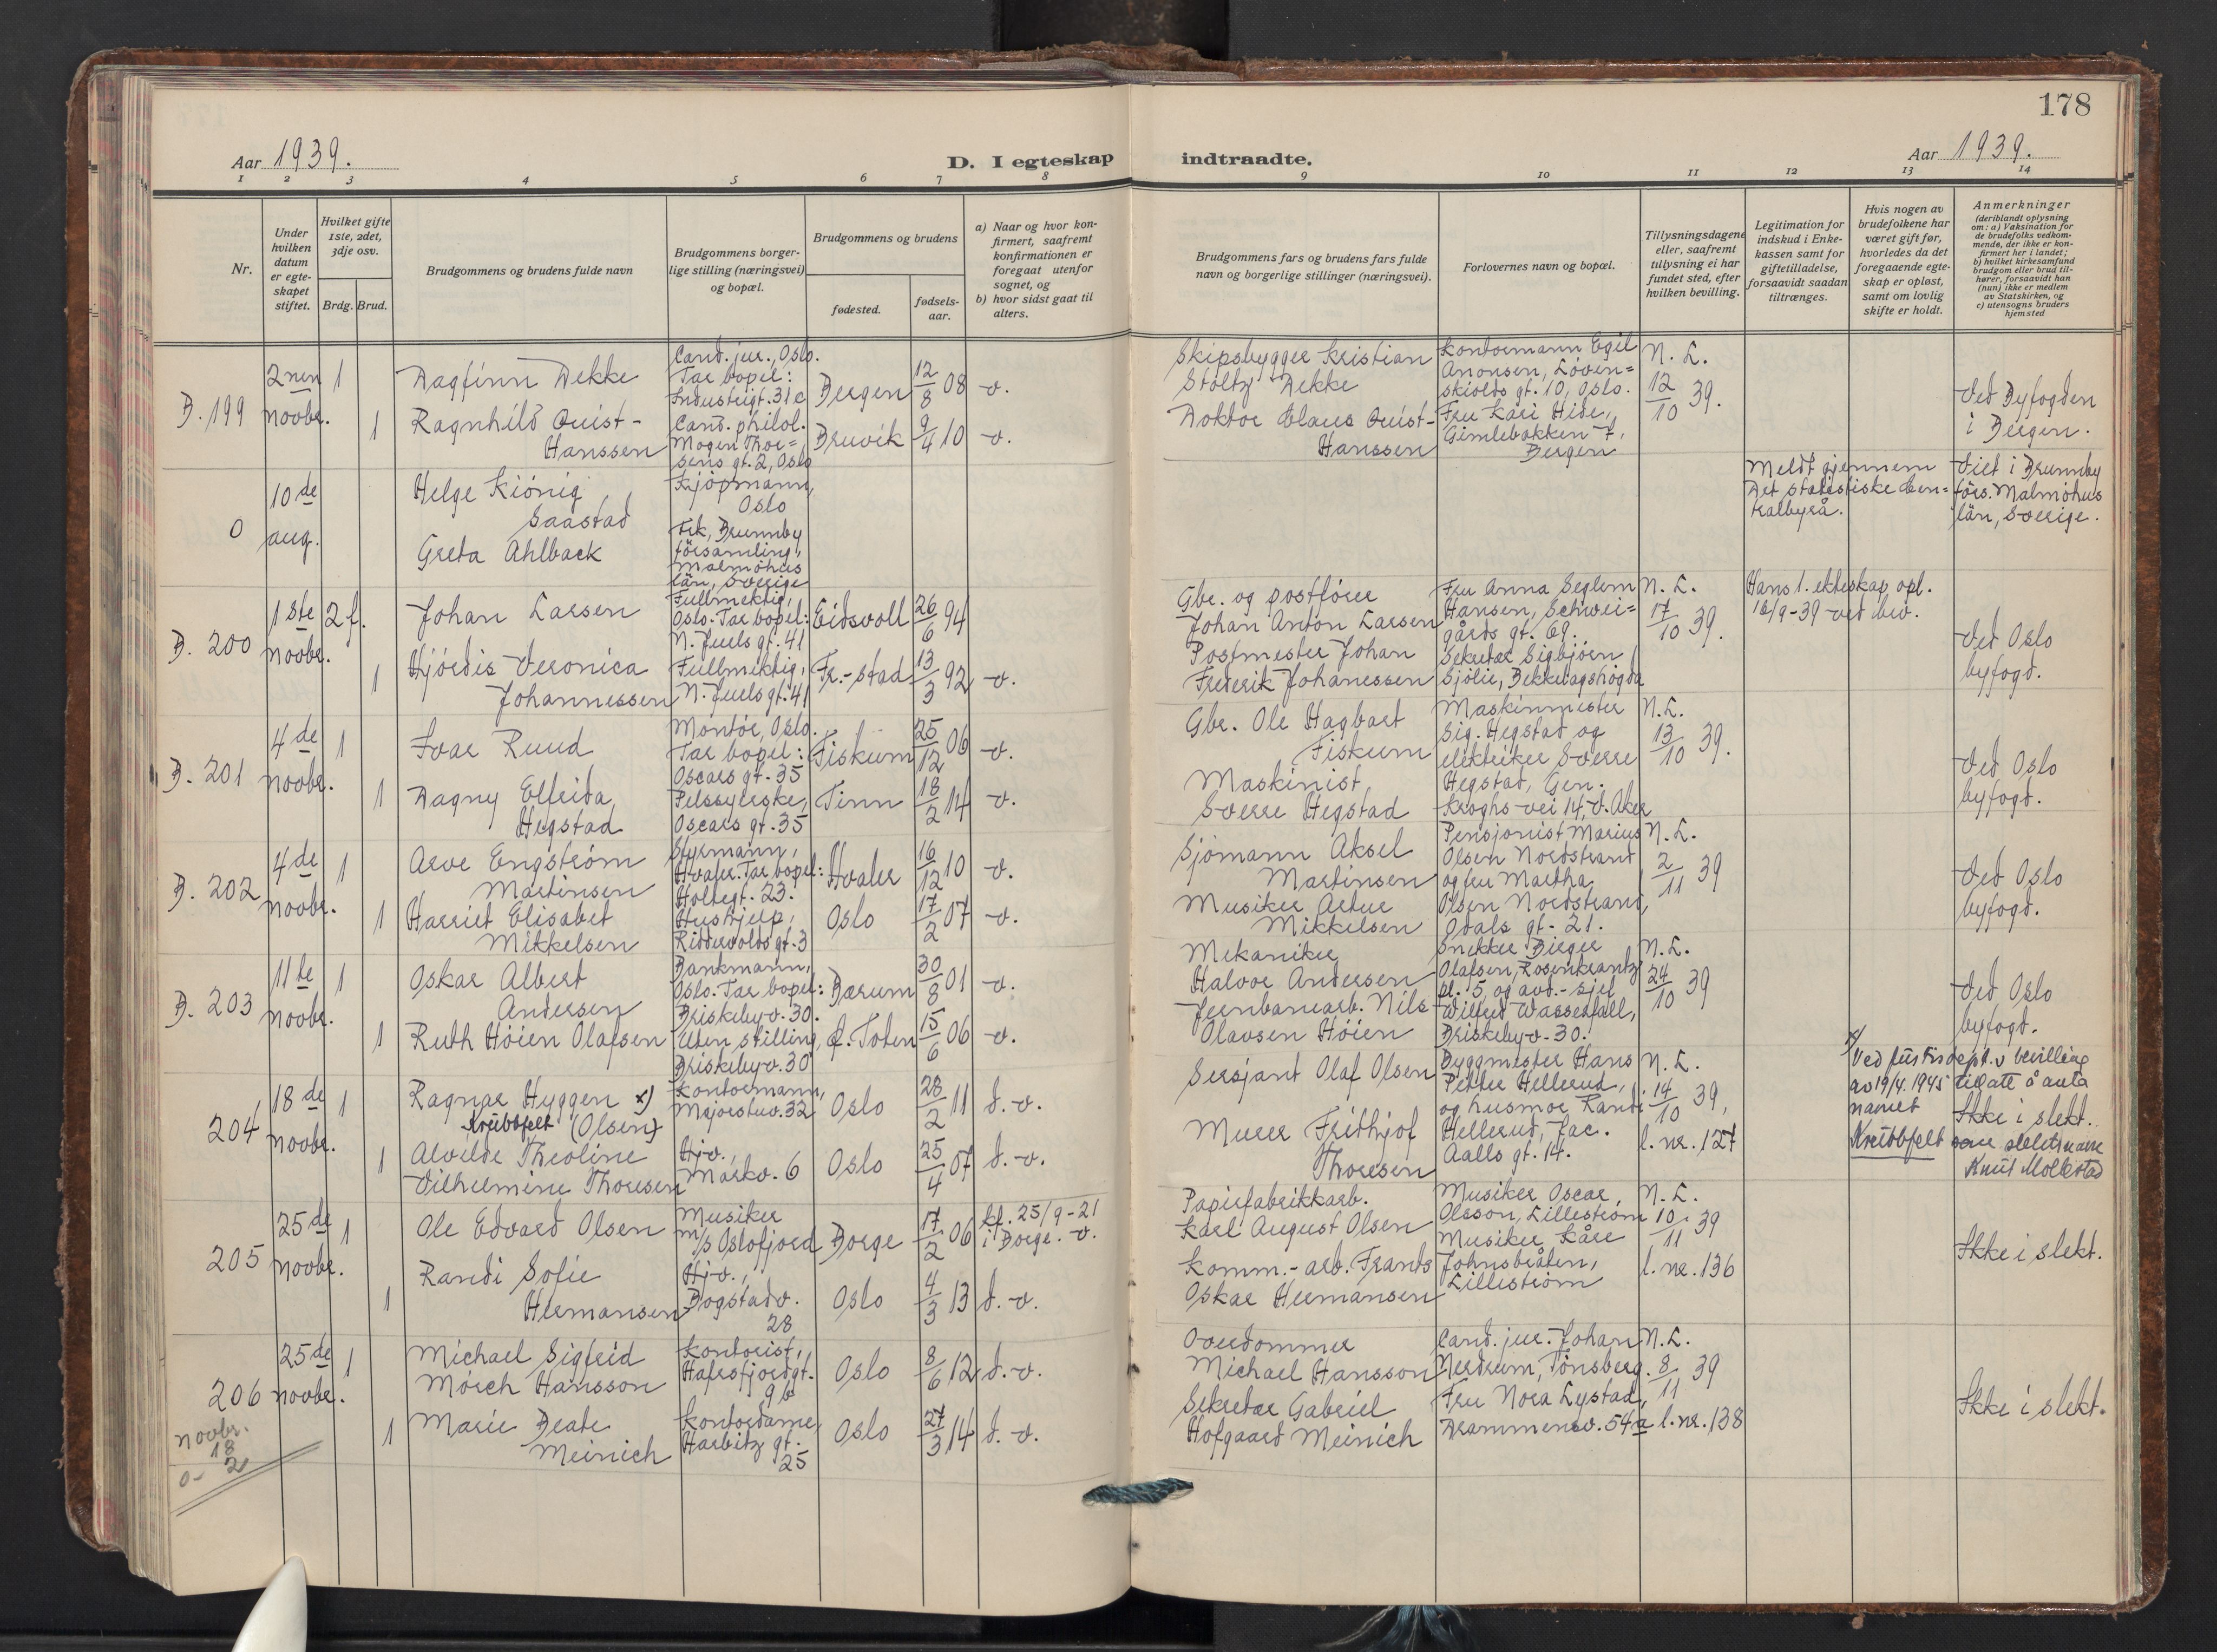 178
Aar 1939.
D. I egteskap indtraadte.
Aar 1939.
1 2 3 4 5 6 7 8 9 10 11 12 13 14
Nr.
Under
hvilken
datum
er egte-
skapet
stiftet.
Hvilket gifte
1ste, 2det,
3dje osv.
Brdg. Brud.
Brudgommens og brudens fulde navn
Brudgommens borger-
lige stilling (næringsvei)
og bopæl.
Brudgommens og brudens
fødested.
fødsels-
aar.
a) Naar og hvor kon-
firmert, saafremt
konfirmationen er
foregaat utenfor
sognet, og
b) hvor sidst gaat til
alters.
Brudgommens fars og brudens fars fulde
navn og borgerlige stillinger (næringsvei).
Forlovernes navn og bopæl.
Tillysningsdagene
eller, saafremt
tillysning ei har
fundet sted, efter
hvilken bevilling.
Legitimation for
indskud i Enke-
kassen samt for
giftetilladelse,
forsaavidt saadan
tiltrænges.
Hvis nogen av
brudefolkene har
været gift før,
hvorledes da det
foregaaende egte-
skap er opløst,
samt om lovlig
skifte er holdt.
Anmerkninger
(deriblandt oplysning
om: a) Vaksination for
de brudefolks vedkom-
mende, der ikke er kon-
firmert her i landet;
b) hvilket kirkesamfund
brudgom eller brud til-
hører, forsaavidt han
(hun) ikke er medlem
av Statskirken, og
c) utensogns bruders
hjemsted
B. 199
2nen
novbr.
1
Dagfinn Dekke
Cand. jur., Oslo.
Tar bopel:
Industrigt. 31c
Bergen
12/8 08
v.
1
Ragnhild Quist-
Hanssen
Cand. philol.
Mogen Thor=
sens gt. 2, Oslo
Bruvik
9/4 10
v.
Skipsbygger Kristian
Stoltz Dekke
Doktor Claus Quist-
Hanssen
Kontormann Egil
Anonsen, Løven=
skiolds gt. 10, Oslo.
Fru Kari Hide,
Gimlebakken 7,
Bergen
N. L.
12/10 39.
Ved Byfogden
i Bergen.
0
10de
aug.
Helge Kiönig
Saastad
Kjøpmann,
Oslo
Greta Ahlback
Frk, Brunnby
församling,
Malmöhus
län, Sverige
Meldt gjennem
Det statistiske Cen=
tralbyrå.
Viet i Brunnby
förs. Malmöhus
län, Sverige.
B. 200
1ste
novbr.
2 f.
Johan Larsen
Fullmektig,
Oslo. Tar bopel:
N. Juels gt. 41
Eidsvoll
26/6 94
1
Hjördis Veronica
Johannessen
Fullmektig,
N. Juels gt. 41
Fr.-stad
13/3 92
v.
Gbr. og postfører
Johan Anton Larsen
Postmester Johan
Frederik Johanessen
Fru Anna Seglem
Hansen, Schwei=
gårds gt. 69.
Sekretær Sigbjørn
Sjølie, Bekkelagshøgda
N. L.
17/10 39.
Hans 1. ekteskap opl.
16/9-39 ved bev.
Ved Oslo
byfogd.
B. 201
4de
novbr.
1
Ivar Ruud
Montör, Oslo.
Tar bopel:
Oscars gt. 35
Fiskum
25/12 06
v.
1
Dagny Elfrida
Hegstad
Pelssyerske,
Oscars gt. 35
Tinn
18/2 14
v.
Gbr. Ole Hagbart
Fiskum
Maskinist
Sverre Hegstad
Maskinmester
Sig. Hegstad og
elektriker Sverre
Hegstad, Gen.
Kroghs vei 14, V. Aker
N. L.
13/10 39.
Ved Oslo
byfogd.
B. 202
4de
novbr.
1
Arve Engström
Martinsen
Styrmann,
Hvaler. Tar bopel:
Holtegt. 23.
Hvaler
16/12 10
v.
1
Harriet Elisabet
Mikkelsen
Hushjelp,
Riddervolds gt. 3
Oslo
17/2 07
v.
Sjømann Aksel
Martinsen
Musiker Artur
Mikkelsen
Pensjonist Marius
Olsen Nordstrand
og fru Martha
Olsen Nordstrand,
Odals gt. 21.
N. L.
2/11 39
Ved Oslo
byfogd.
B. 203
11te
novbr.
1
Oskar Albert
Andersen
Bankmann,
Oslo. Tar bopel:
Briskebyv. 30.
Bærum
30/8 01
v.
1
Ruth Høien Olafsen
Uten stilling,
Briskebyv. 30
Ø. Toten
15/6 06
v.
Mekaniker
Halvor Andersen
Jernbanearb. Nils
Olavsen Høien
Snekker Birger
Olafsen, Rosenkrantz
pl. 5, og avd.-sjef
Wilfred Wasserfall,
Briskebyv. 30.
N. L.
24/10 39
Ved Oslo
byfogd.
204
18de
novbr.
1
Ragnar Hyggen x)
Kreutzfelt (Olsen)
Kontormann,
Majorstuv. 32
Oslo
28/2 11
d. v.
1
Alvilde Theoline
Vilhelmine Thoresen
Hjv.,
Markv. 6
Oslo
25/4 07
d. v.
Sersjant Olaf Olsen
Murer Fridthjof
Thoresen
Byggmester Hans
Petter Hellerud,
og husmor Randi
Hellerud, Jac.
Aalls gt. 14.
N. L.
14/10 39,
l. nr. 127
x/
Ved justisdept.s bevilling
av 19/4. 1945 tillatt å anta
navnet
Ikke i slekt.
som slektsnavn
Knut Mollestad
205
25de
novbr.
1
Ole Edvard Olsen
Musiker
m/s Oslofjord
Borge
17/2 06
kf. 25/9-21
i Borge. v.
1
Randi Sofie
Hermansen
Hjv.,
Bogstadv.
28
Oslo
4/3 13
d. v.
Papirfabrikkarb.
Karl August Olsen
Komm.-arb. Frants
Oskar Hermansen
Musiker Oscar
Olsson, Lillestrøm
Musiker Kåre
Johnsbråten,
Lillestrøm
N. L.
10/11 39
l. nr. 136
Ikke i slekt.
206
25de
novbr.
1
Michael Sigfrid
Mörch Hansson
Kontorist,
Hafrsfjordgt.
9b
Oslo
8/6 12
d. v.
1
Marie Beate
Meinich
Kontordame,
Harbitz gt.
25
Oslo
27/3 14
d. v.
Overdommer
Michael Hansson
Sekretær Gabriel
Hofgaard Meinich
Cand. jur. Johan
Nerdrum, Tønsberg.
Fru Nora Lystad,
Drammensv. 54a
N. L.
8/11 39
l. nr. 138
Ikke i slekt.
novbr.
18
0- 2